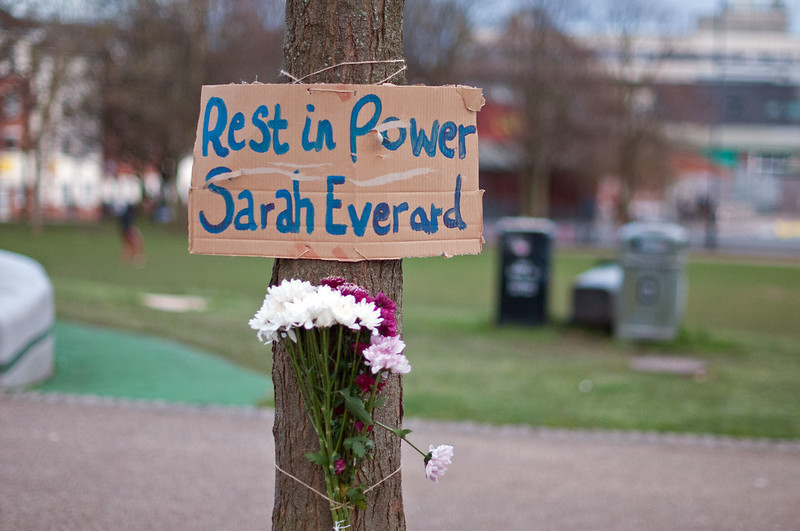 Rest in Power
Sarah Everard